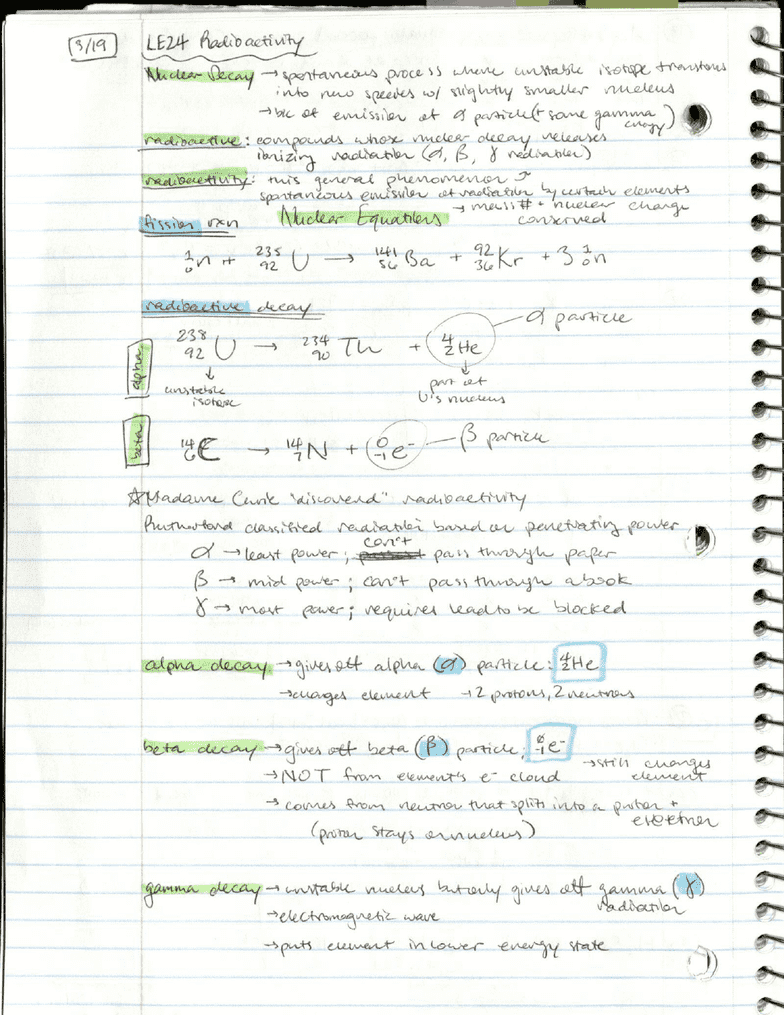 3/19 LE24 Radioactivity
Nuclear Decay → spontaneous process where unstable isotope transforms
into new species w/ slightly smaller nucleus
→ bc of emission of α particle (+ some gamma energy)
radioactive: compounds whose nuclear decay releases
ionizing radiation (α, β, γ radiation)
radioactivity: this general phenomenon ↗
spontaneous emission of radiation by certain elements
fission rxn Nuclear Equations → mass # + nuclear charge
conserved
¹₀n + ²³⁵₉₂U → ¹⁴¹₅₆Ba + ⁹²₃₆Kr + 3 ¹₀n
radioactive decay
alpha ²³⁸₉₂U → ²³⁴₉₀Th + ⁴₂He — α particle
↓ unstable isotope
↓ part of U's nucleus
beta ¹⁴₆C → ¹⁴₇N + ⁰₋₁e⁻ — β particle
☆ Madame Curie "discovered" radioactivity
Rutherford classified radiation based on penetrating power
α → least power; can't pass through paper
β → mid power; can't pass through a book
γ → most power; requires lead to be blocked
alpha decay → gives off alpha (α) particle: ⁴₂He
→ changes element → 2 protons, 2 neutrons
beta decay → gives off beta (β) particle: ⁰₋₁e⁻
→ still changes element
→ NOT from element's e⁻ cloud
→ comes from neutron that splits into a proton +
electron
(proton stays in nucleus)
gamma decay → unstable nucleus but only gives off gamma (γ)
radiation
→ electromagnetic wave
→ puts element in lower energy state